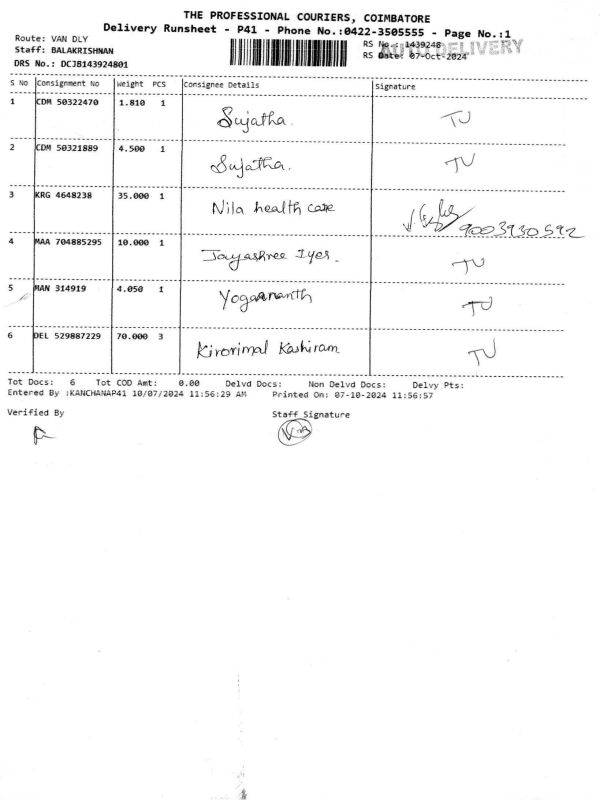 THE PROFESSIONAL COURIERS, COIMBATORE
Delivery Runsheet - P41 - Phone No.:0422-3505555 - Page No.:1
Route: VAN DLY
RS No.: 1439248
AUTO DELIVERY
Staff: BALAKRISHNAN
RS Date: 07-Oct-2024
DRS No.: DCJB143924801
S No Consignment No Weight PCS Consignee Details Signature
1 CDM 50322470 1.810 1 Sujatha. TU
2 CDM 50321889 4.500 1 Sujatha. TU
3 KRG 4648238 35.000 1 Nila health care 9003930592
4 MAA 704885295 10.000 1 Jayashree Iyer. TU
5 MAN 314919 4.050 1 Yogaananth TU
6 DEL 529887229 70.000 3 Kirorimal Kashiram TU
Tot Docs: 6 Tot COD Amt: 0.00 Delvd Docs: Non Delvd Docs: Delvy Pts:
Entered By :KANCHANAP41 10/07/2024 11:56:29 AM Printed On: 07-10-2024 11:56:57
Verified By Staff Signature